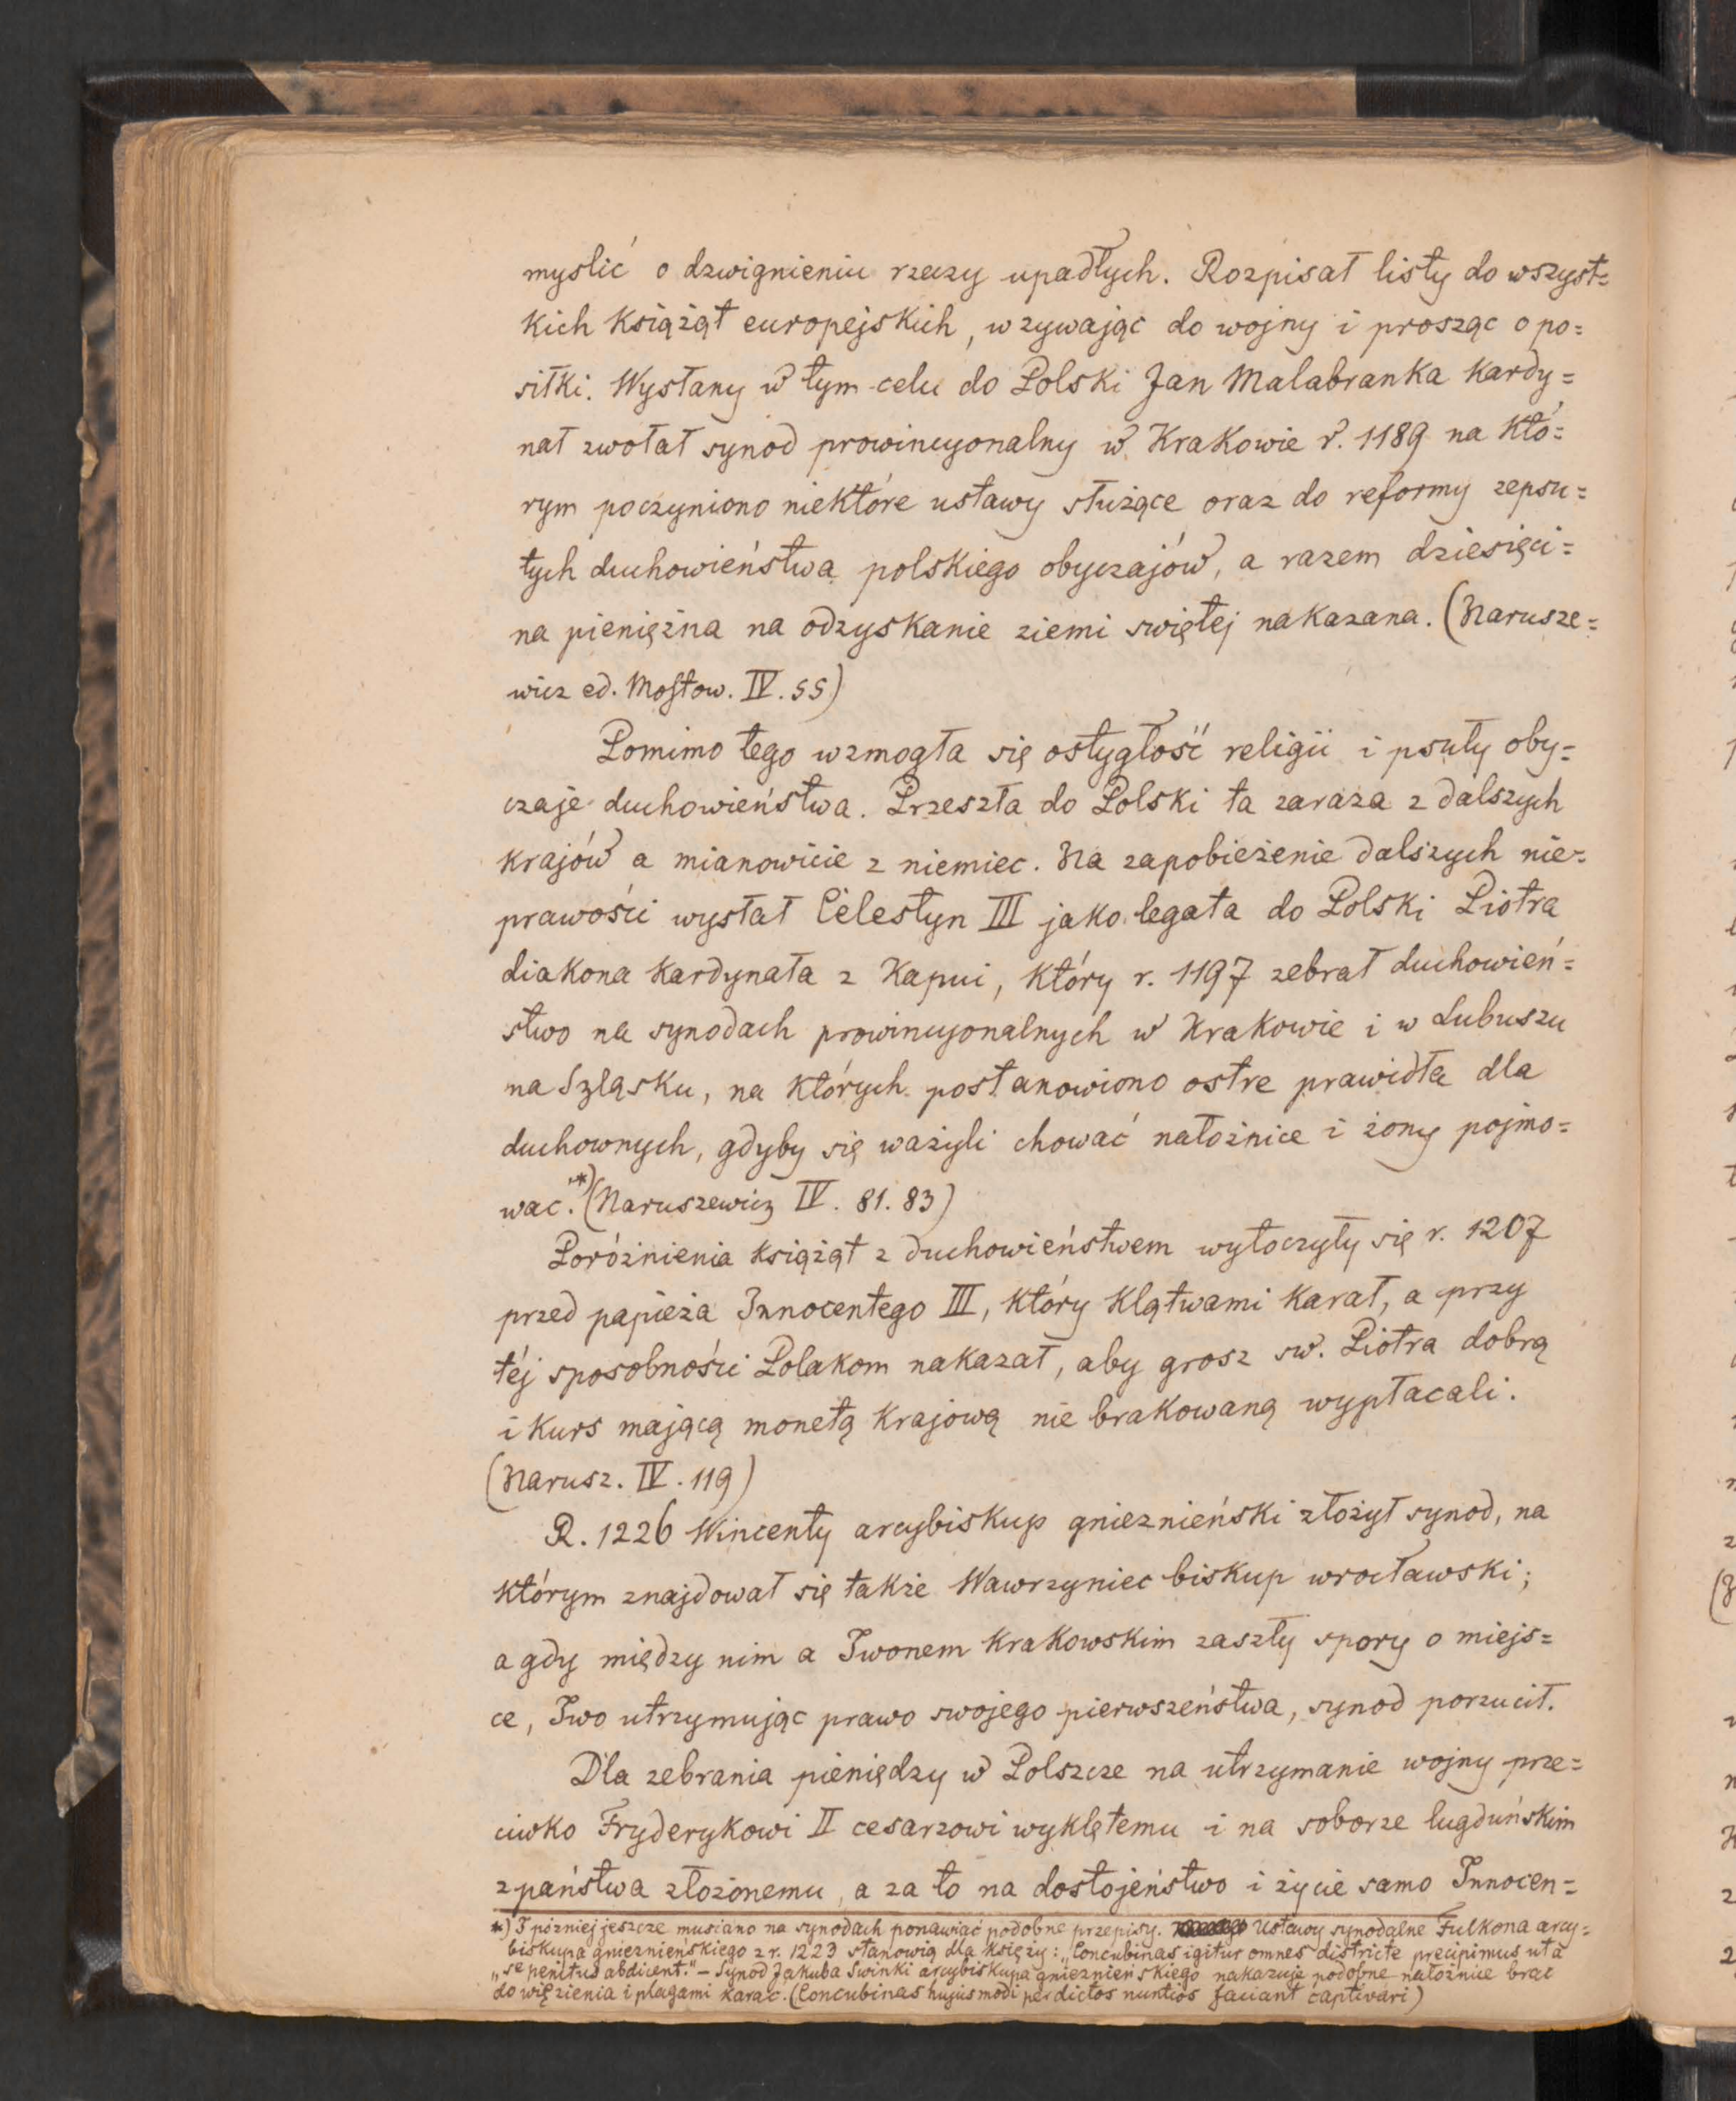 myslić o dzwignieniu rzeczy upadłych. Rozpisał listy do wszyst=
kich książąt europejskich, wzywając do wojny i prosząc o po=
siłki. Wysłany w tym celu do Polski Jan Malabranka kardy=
nał zwołał synod prowincyonalny w Krakowie r. 1189 na któ=
rym poczyniono niektóre ustawy służące oraz do reformy zepsu=
tych duchowieństwa polskiego obyczajów, a razem dziesięci=
na pieniężna na odzyskanie ziemi swiętej nakazana. (Narusze=
wicz ed. Mostow. IV. 55)
Pomimo tego wzmogła się ostygłość religii i psuły oby=
czaje duchowieństwa. Przeszła do Polski ta zaraza z dalszych
krajów a mianowicie z niemiec. Na zapobieżenie dalszych nie=
prawości wysłał Celestyn III jako legata do Polski Piotra
diakona kardynała z Kapui, który r. 1197 zebrał duchowień=
stwo na synodach prowincyonalnych w Krakowie i w Lubuszu
na Szląsku, na których postanowiono ostre prawidła dla
duchownych, gdyby się ważyli chować nałożnice i żony pojmo=
wac.*) (Naruszewicz IV. 81. 83)
Poróżnienia książąt z duchowieństwem wytoczyły się r. 1207
przed papieża Innocentego III, który klątwami karał, a przy
téj sposobności Polakom nakazał, aby grosz sw. Piotra dobrą
i kurs mającą monetą krajową nie brakowaną wypłacali.
(Narusz. IV. 119)
R. 1226 Wincenty arcybiskup gnieznieński złożył synod, na
którym znajdował się także Wawrzyniec biskup wrocławski;
a gdy między nim a Iwonem krakowskim zaszły spory o miejs=
ce, Iwo utrzymując prawo swojego pierwszeństwa, synod porzucił.
Dla zebrania pieniędzy w Polszcze na utrzymanie wojny prze=
ciwko Fryderykowi II cesarzowi wyklętemu i na soborze lugduńskim
z państwa złożonemu, a za to na dostojeństwo i życie samo Innocen=
*) I pózniej jeszcze musiano na synodach ponawiać podobne przepisy. Ustawy synodalne Fulkona arcy=
biskupa gnieznieńskiego z r. 1223 stanowią dla księży: „Concubinas igitur omnes districte precipimus ut a
„se penitus abdicent." – Synod Jakuba Swinki arcybiskupa gnieznieńskiego nakazuje podobne nałożnice brac
do więzienia i plagami karac. (Concubinas hujusmodi per dictos nuntios faciant captivari)